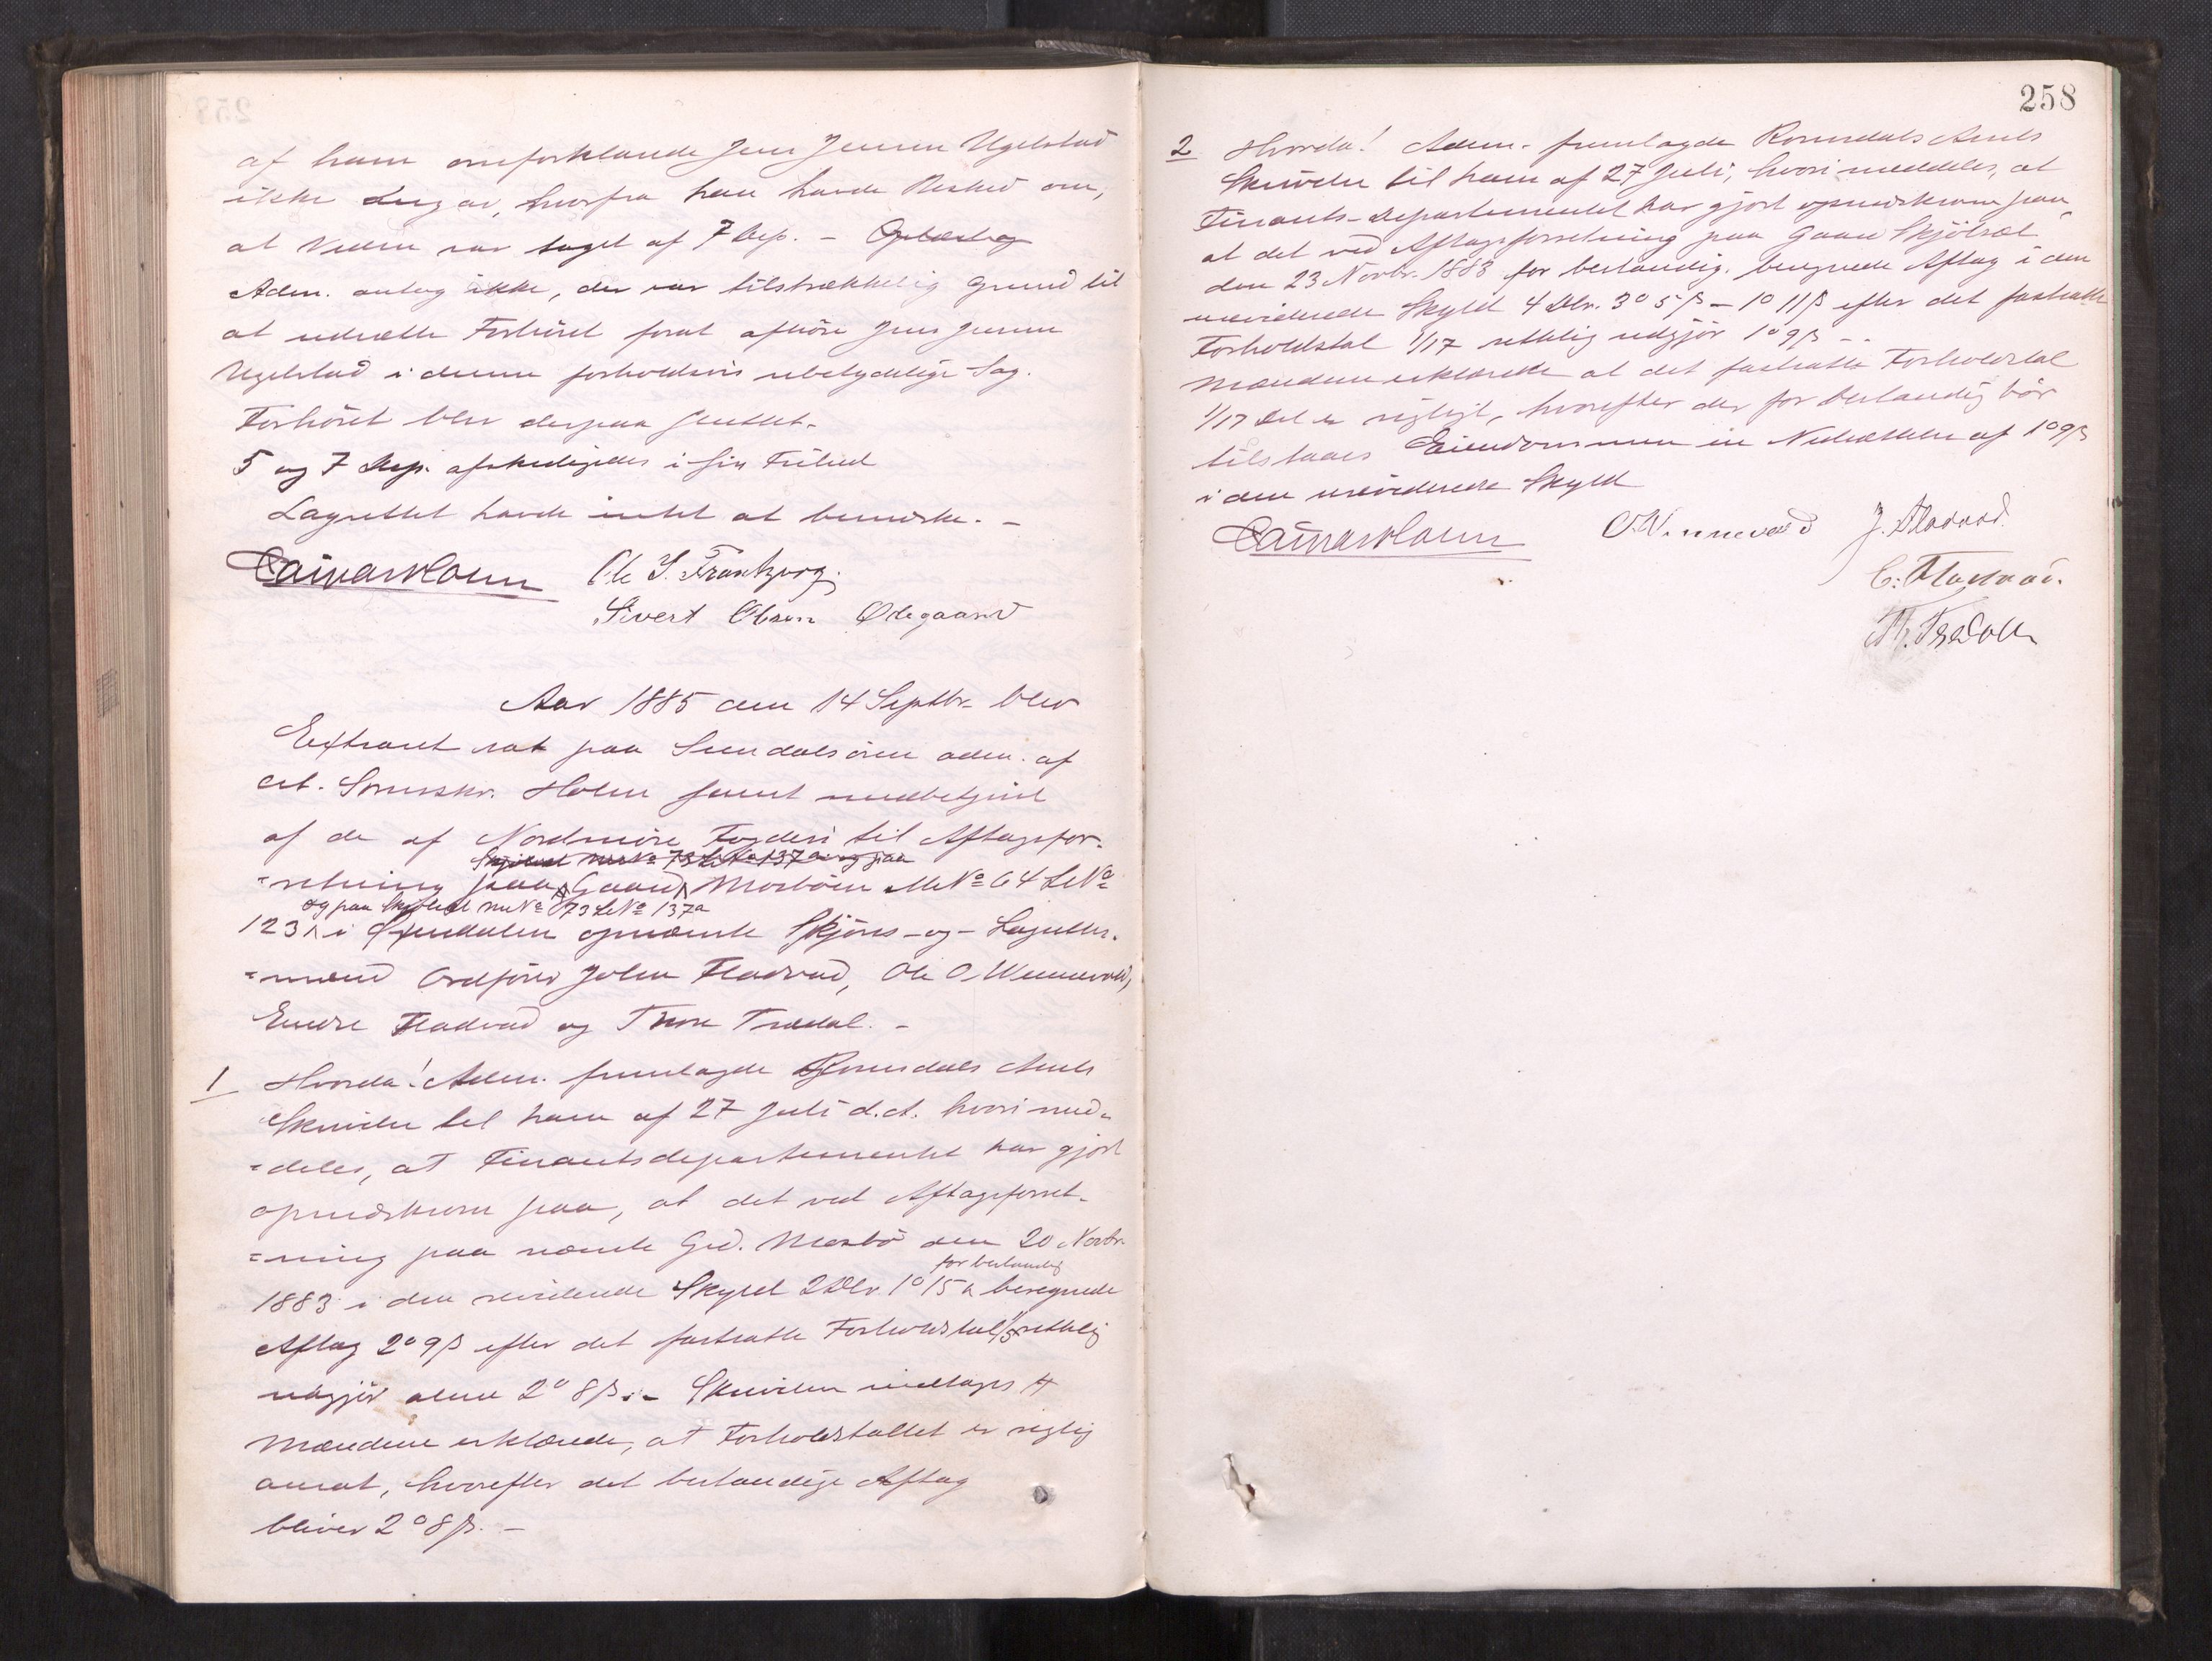 af ham omforklarede Jens Jensen Ugelstad
ikke angav, hvorfra han havde Besked om,
at Veden var taget af 7 Dep. –
Adm. antog ikke, der var tilstrækkelig Grund til
at udsætte Forhöret forat afhöre Jens Jensen
Ugelstad i denne forholdsvis ubetydelige Sag.
Forhöret blev derpaa sluttet.
5 og 7 Dep. afskedigedes i sin Tid
Lagrettet havde intet at bemærke. –
EainarHolm Ole S. Frankjorg.
Sivert Olsen Ödegaard
Aar 1885 den 14 Septbr. blev
Extraret sat paa Sundalsören adm. af
cst. Sorenskr. Holm samt medbetjent
af de af Nordmöre Fogderi til Aftagsfor-
Skjölsæt MNo 73 LNo 137a og paa
=retning paa Gaard Morböen MNo 64 LNo
og paa Skjölsæt MNo 73 LNo 137a
123 i Sundalen opnævnte Skjöns-og-Lagrettes-
=mænd Ordförer John Fladvad, Ole O. Wennevold,
Endre Fladvad og Thore Trædal. –
1 Hvorda! Adm. fremlagde Romsdals Amts
Skrivelse til ham af 27 Juli d.A. hvori med-
=deles, at Finantsdepartementet har gjort
opmærksom paa, at det ved Aftagsforret-
=ning paa nævnte Grd. Morbö den 20 Novbr.
for bestandig
1883 i den reviderede Skyld 2 Dlr. 1 o 15 ß beregnede
Aftag 2 o 9 ß efter det fastsatte Forholdstal 1/5 rettelig
udgjör alene 2 o 8 ß. – Skrivelsen vedtages #
Mændene erklærede, at Forholdstallet er rigtig
ansat, hvorefter det bestandige Aftag
bliver 2 o 8 ß. –
258
2 Hvorda! Adm. fremlagde Romsdals Amts
Skrivelse til ham af 27 Juli, hvori meddeles, at
Finants-Departementet har gjort opmærksom paa,
at det ved Aftagsforretning paa Gaard Skjölsæt
den 23 Novbr. 1883 for bestandig beregnede Aftag i den
ureviderede Skyld 4 Dlr. 3 o 5 ß – 1 o 11 ß efter det fastsatte
Forholdstal 1/17 rettelig udgjör 1 o 9 ß –
Mændene erklærede at det fastsatte Forholdstal
1/17 Del er rigtigt, hvorefter der for bestandig bör
tilstaaes Eiendommen en Nedsættelse af 1 o 9 ß
i den ureviderede Skyld
EainarHolm O. Wennevold J. Fladvad.
E. Fladvad.
Th. Trædal